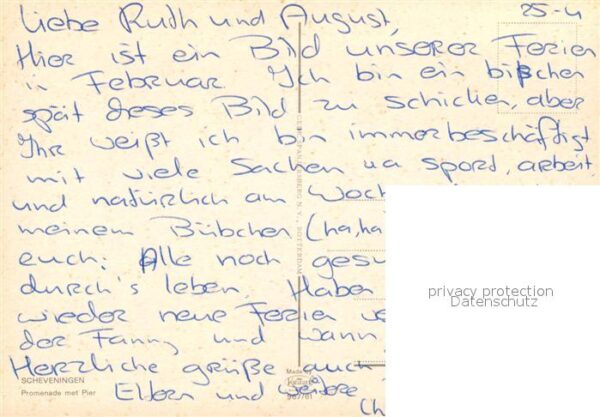 25-4
Liebe Ruth und August,
Hier ist ein Bild unserer Ferien
in Februar. Ich bin ein bißchen
spät dieses Bild zu schicken, aber
Ihr weißt ich bin immerbeschäftigt
mit viele Sachen ua sport, arbeit,
und natürlich am Woch
meinem Bübchen (ha, ha
euch: Alle noch gesu
durch's leben. Haben
wieder neue Ferien
der Fanny und wann
Herzliche grüße auch
Eltern und weitere
(h
SCHEVENINGEN
Promenade met Pier
Made by
privacy protection
Datenschutz